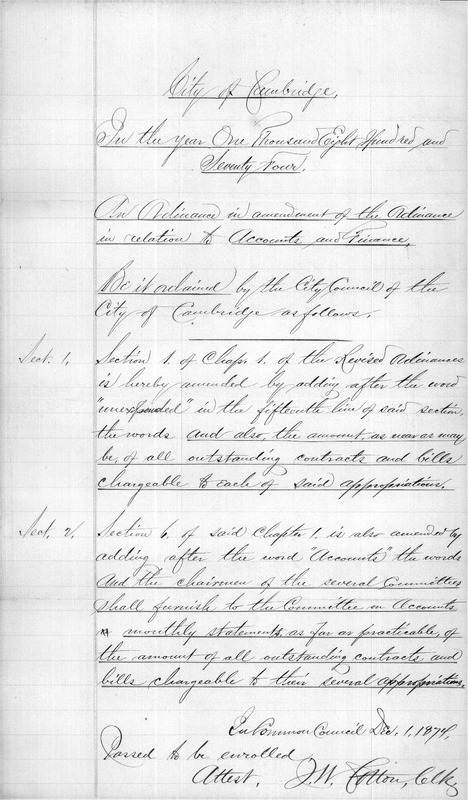 City of Cambridge.
In the year One Thousand Eight Hundred and
Seventy Four.
An Ordinance in amendment of the Ordinance
in relation to Accounts and Finance.
Be it ordained by the City Council of the
City of Cambridge as follows.
Sect. 1. Section 1. of Chapr. 1. of the Revised Ordinances
is hereby amended by adding after the word
"unexpended" in the fifteenth line of said section,
the words and also, the amount, as near as may
be, of all outstanding contracts and bills
chargeable to each of said appropriations.
Sect. 2. Section 6. of said Chapter 1. is also amended by
adding after the word "Accounts" the words
And the chairmen of the several Committees
shall furnish to the Committee on Accounts
monthly statements, as far as practicable, of
the amount of all outstanding contracts and
bills chargeable to their several appropriations.
In Common Council Dec. 1, 1874.
Passed to be enrolled
Attest. J. W. Cotton, Clk.